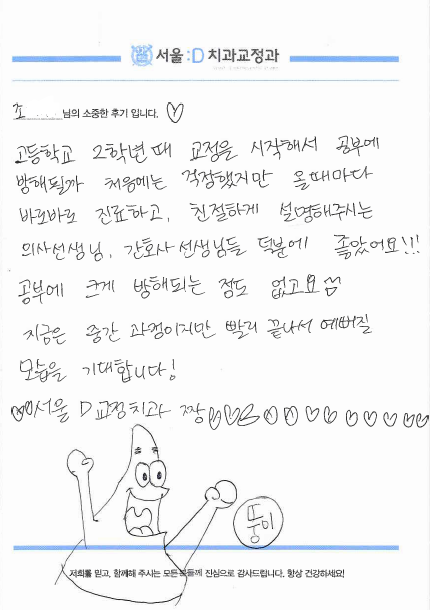 서울:D 치과교정과
조 님의 소중한 후기 입니다. ♡
고등학교 2학년 때 교정을 시작해서 공부에
방해될까 처음에는 걱정했지만 올때마다
바로바로 진료하고, 친절하게 설명해주시는
의사선생님, 간호사 선생님들 덕분에 좋았어요!!!
공부에 크게 방해되는 점도 없고요
지금은 중간 과정이지만 빨리 끝나서 예뻐질
모습을 기대합니다!
♡♡서울 D 교정치과 짱♡♡♡♡♡♡♡♡♡♡♡
뚱이
저희를 믿고, 함께해 주시는 모든분들께 진심으로 감사드립니다. 항상 건강하세요!